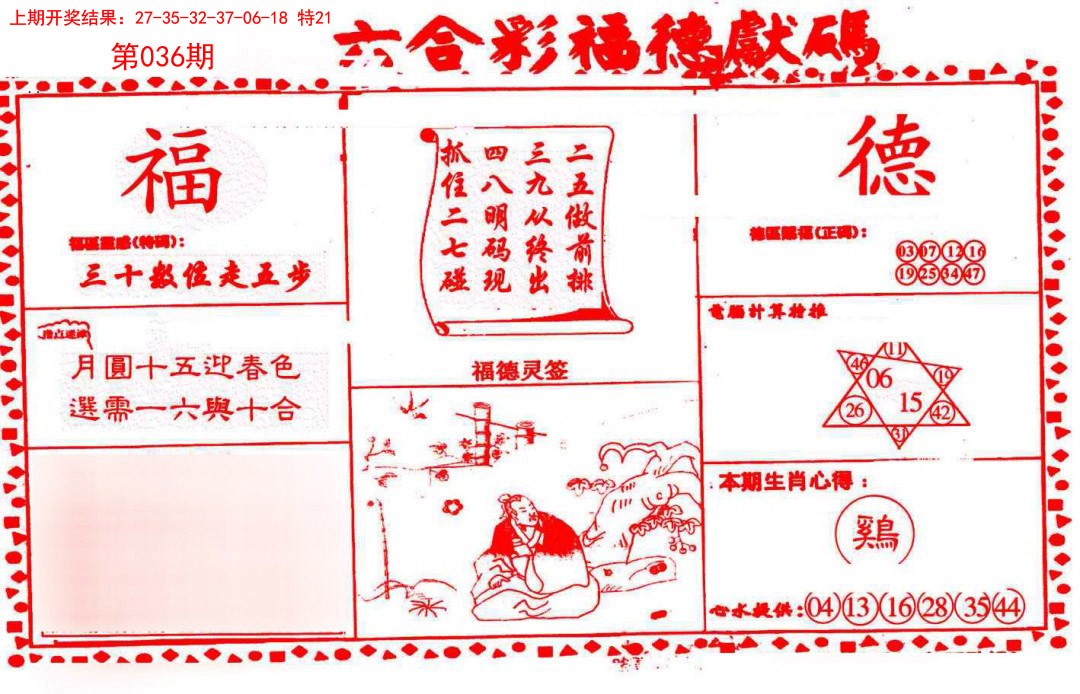 上期开奖结果：27-35-32-37-06-18 特21
第036期
六合彩福德獻碼
福
福區靈感(特碼)：
三十數位走五步
月圓十五迎春色
選需一六與十合
二五做前排
三九从终出
四八明码现
抓住二七碰
福德灵签
德
德區賜福(正碼)：
03 07 12 16
19 25 34 47
電腦計算檢推
11
46 19
06
15
26 42
31
本期生肖心得：
鷄
心水提供：04 13 16 28 35 44